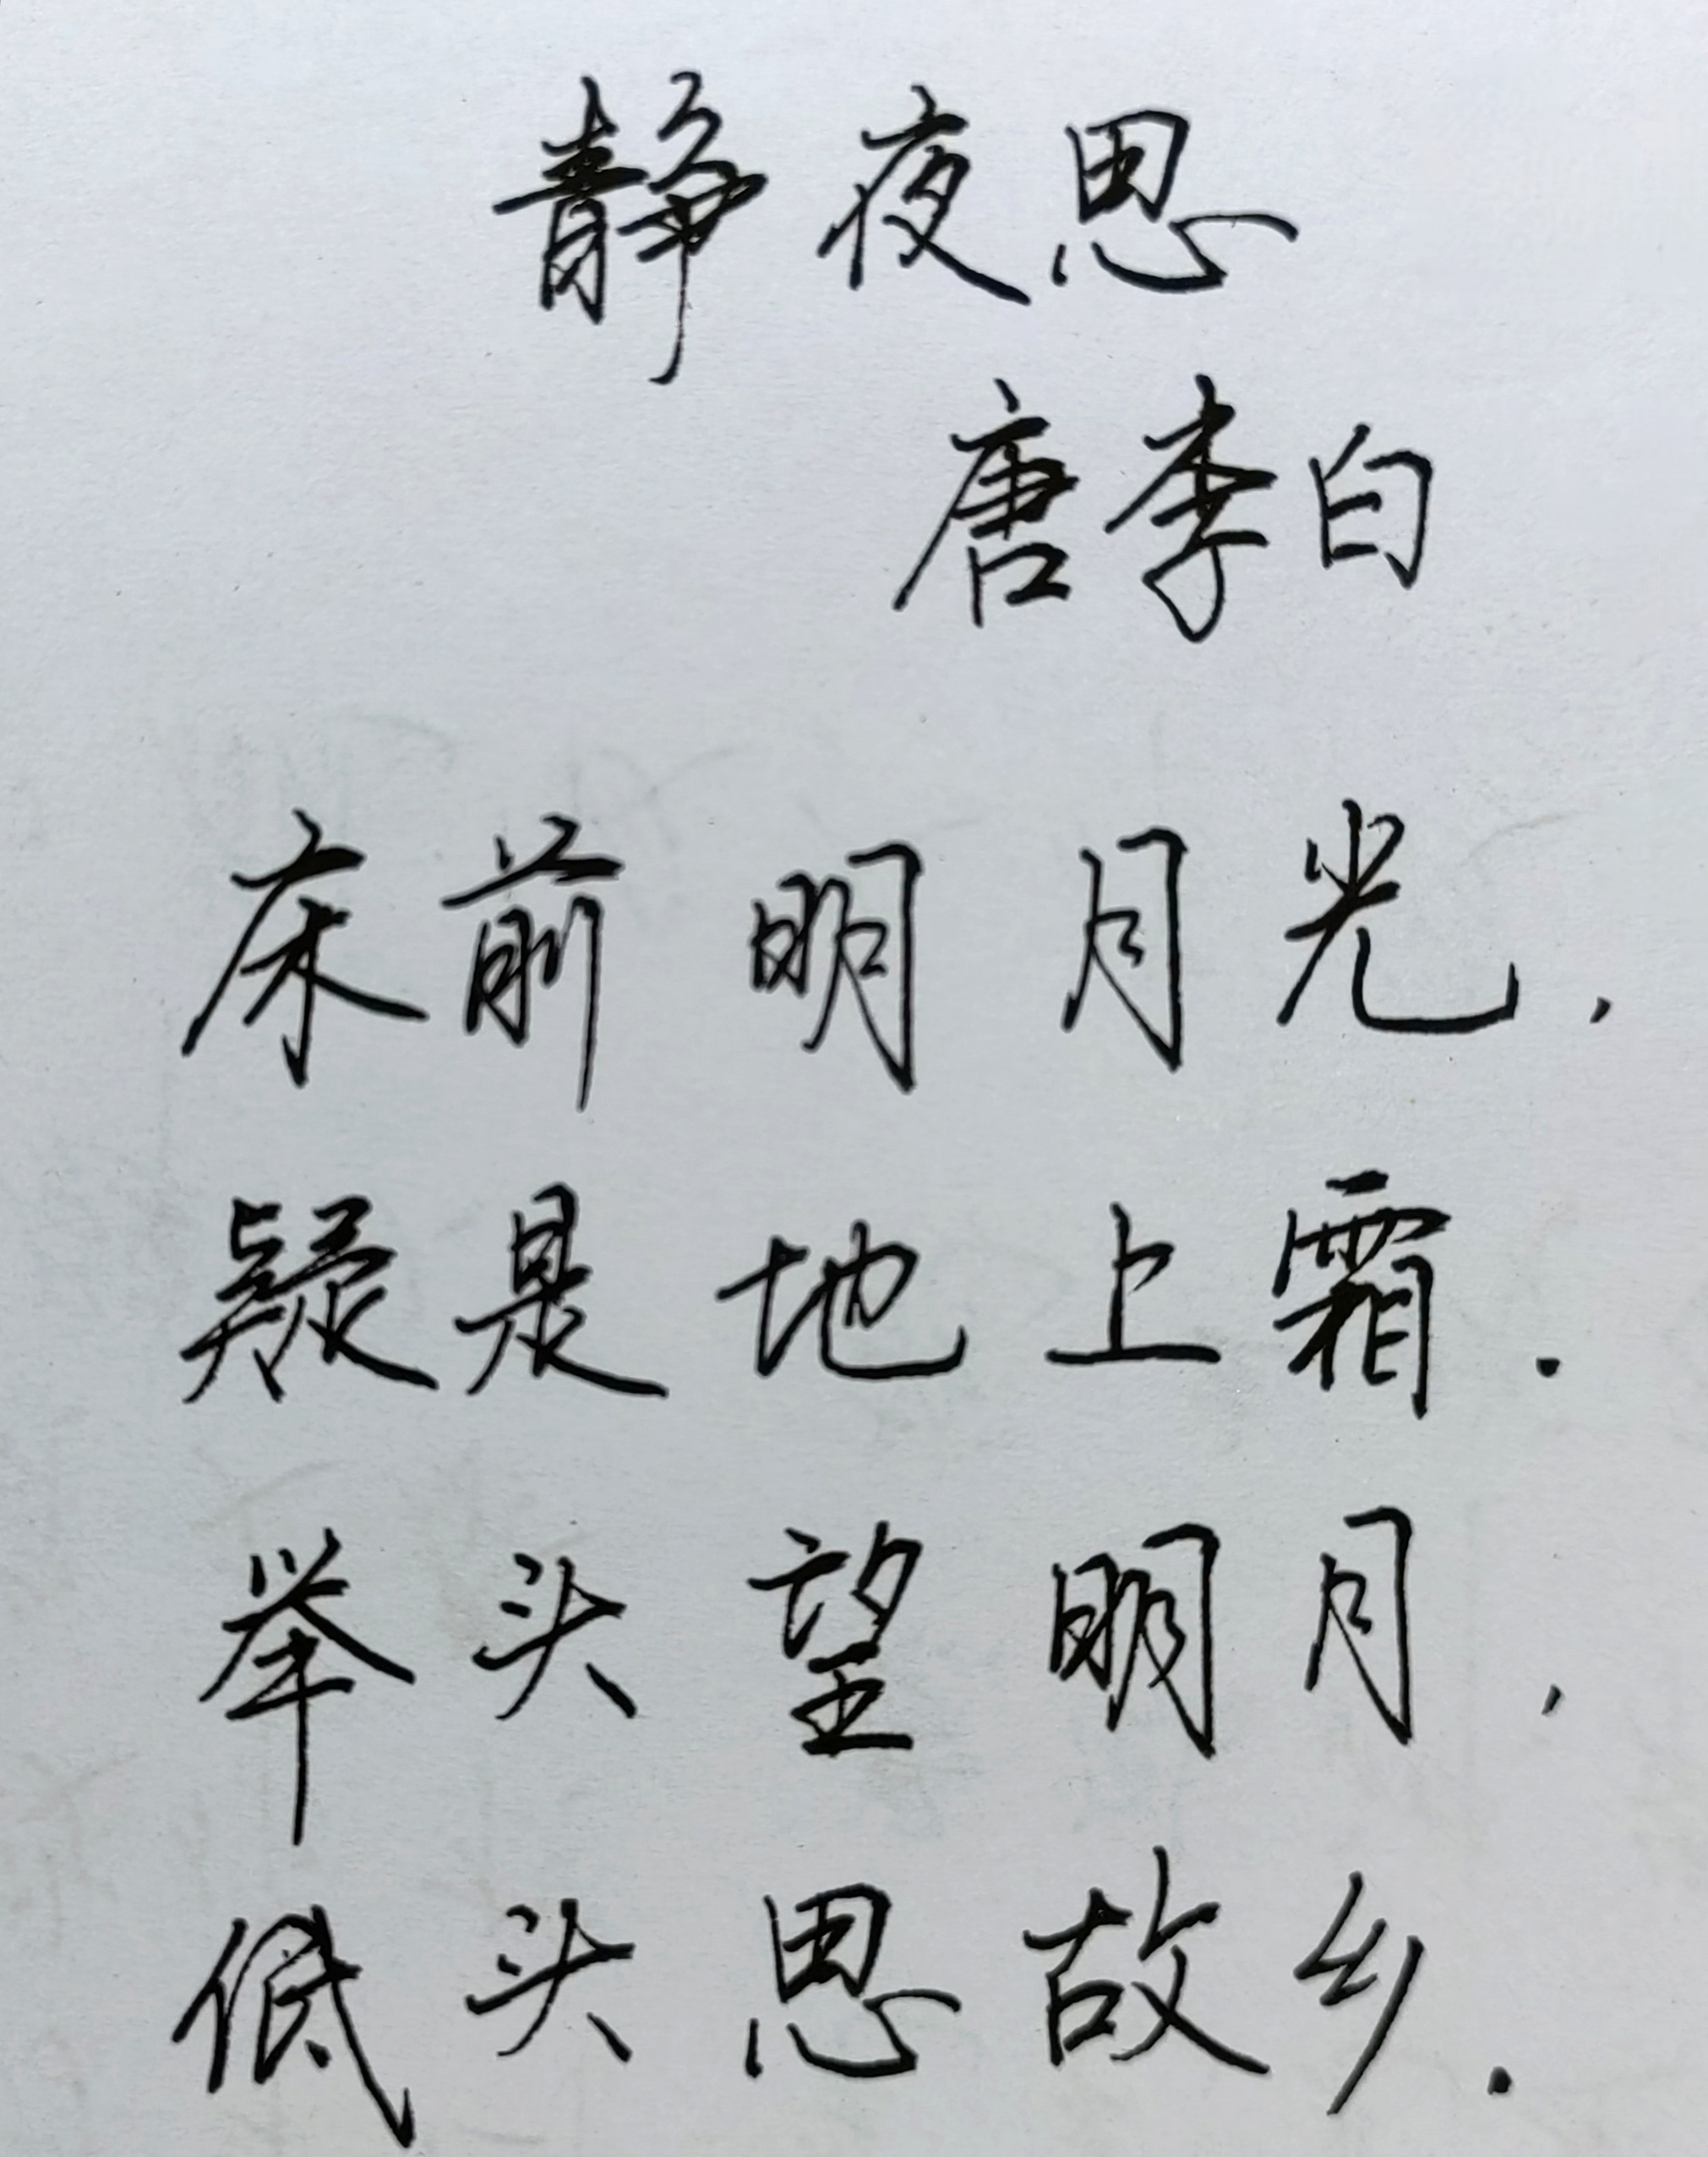 静夜思
唐李白
床前明月光,
疑是地上霜.
举头望明月,
低头思故乡.